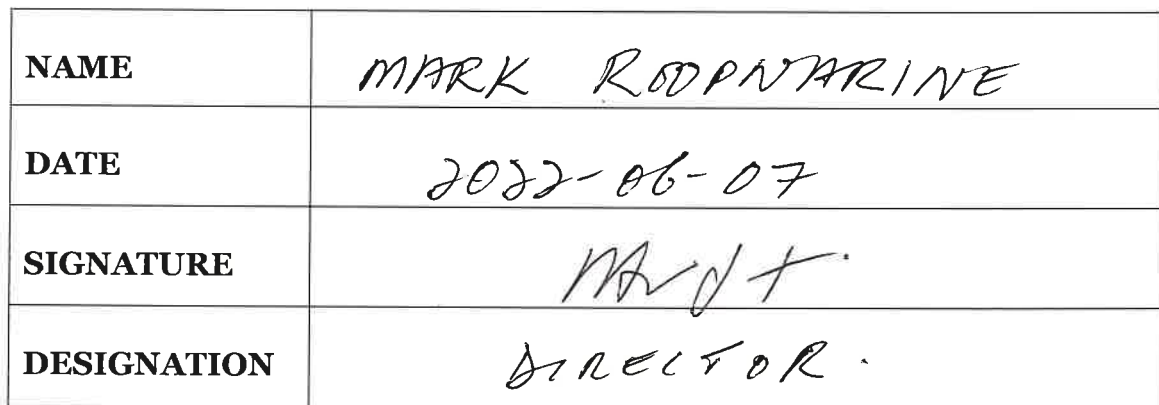 NAME MARK ROOPNARINE
DATE 2022-06-07
SIGNATURE
DESIGNATION DIRECTOR.